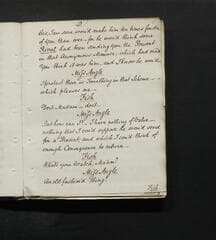 D
this I am sure would make him ten times fonder
of you than ever – for he would think some
Rival had been sending you the Present
in that Anonymous Manner, which had made
you think it was him, and
Miss Angle
I protest there is Something in that Scheme —
which pleases me —
Fish
Do it Madam — do it —
Miss Angle
But how can I? I have nothing of Value —
nothing that I could suppose he would send
for a Present, and which I could think of
enough Consequence to return —
Fish
What's your Watch, Madam?
Miss Angle
An old fashion'd Thing!
Fish